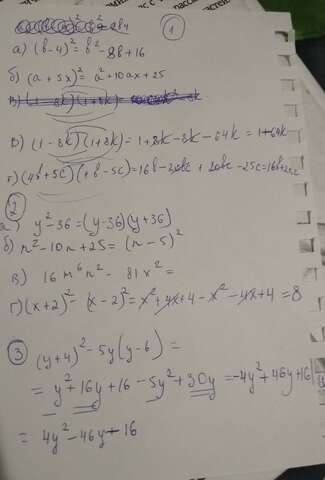 1
а) (b-4)² = b² - 8b + 16
б) (a + 5x)² = a² + 10ax + 25
в) (1 - 8k)(1 + 8k) = 1 + 8k - 8k - 64k = 1 + 64k
г) (4b + 5c)(4b - 5c) = 16b - 20bc + 20bc - 25c = 16b + 25c
2
а) y² - 36 = (y - 36)(y + 36)
б) n² - 10n + 25 = (n - 5)²
в) 16 m⁶n² - 81x² =
г) (x + 2)² - (x - 2)² = x² + 4x + 4 - x² - 4x + 4 = 8
3
(y + 4)² - 5y(y - 6) =
= y² + 16y + 16 - 5y² + 30y = -4y² + 46y + 16
= 4y² - 46y + 16